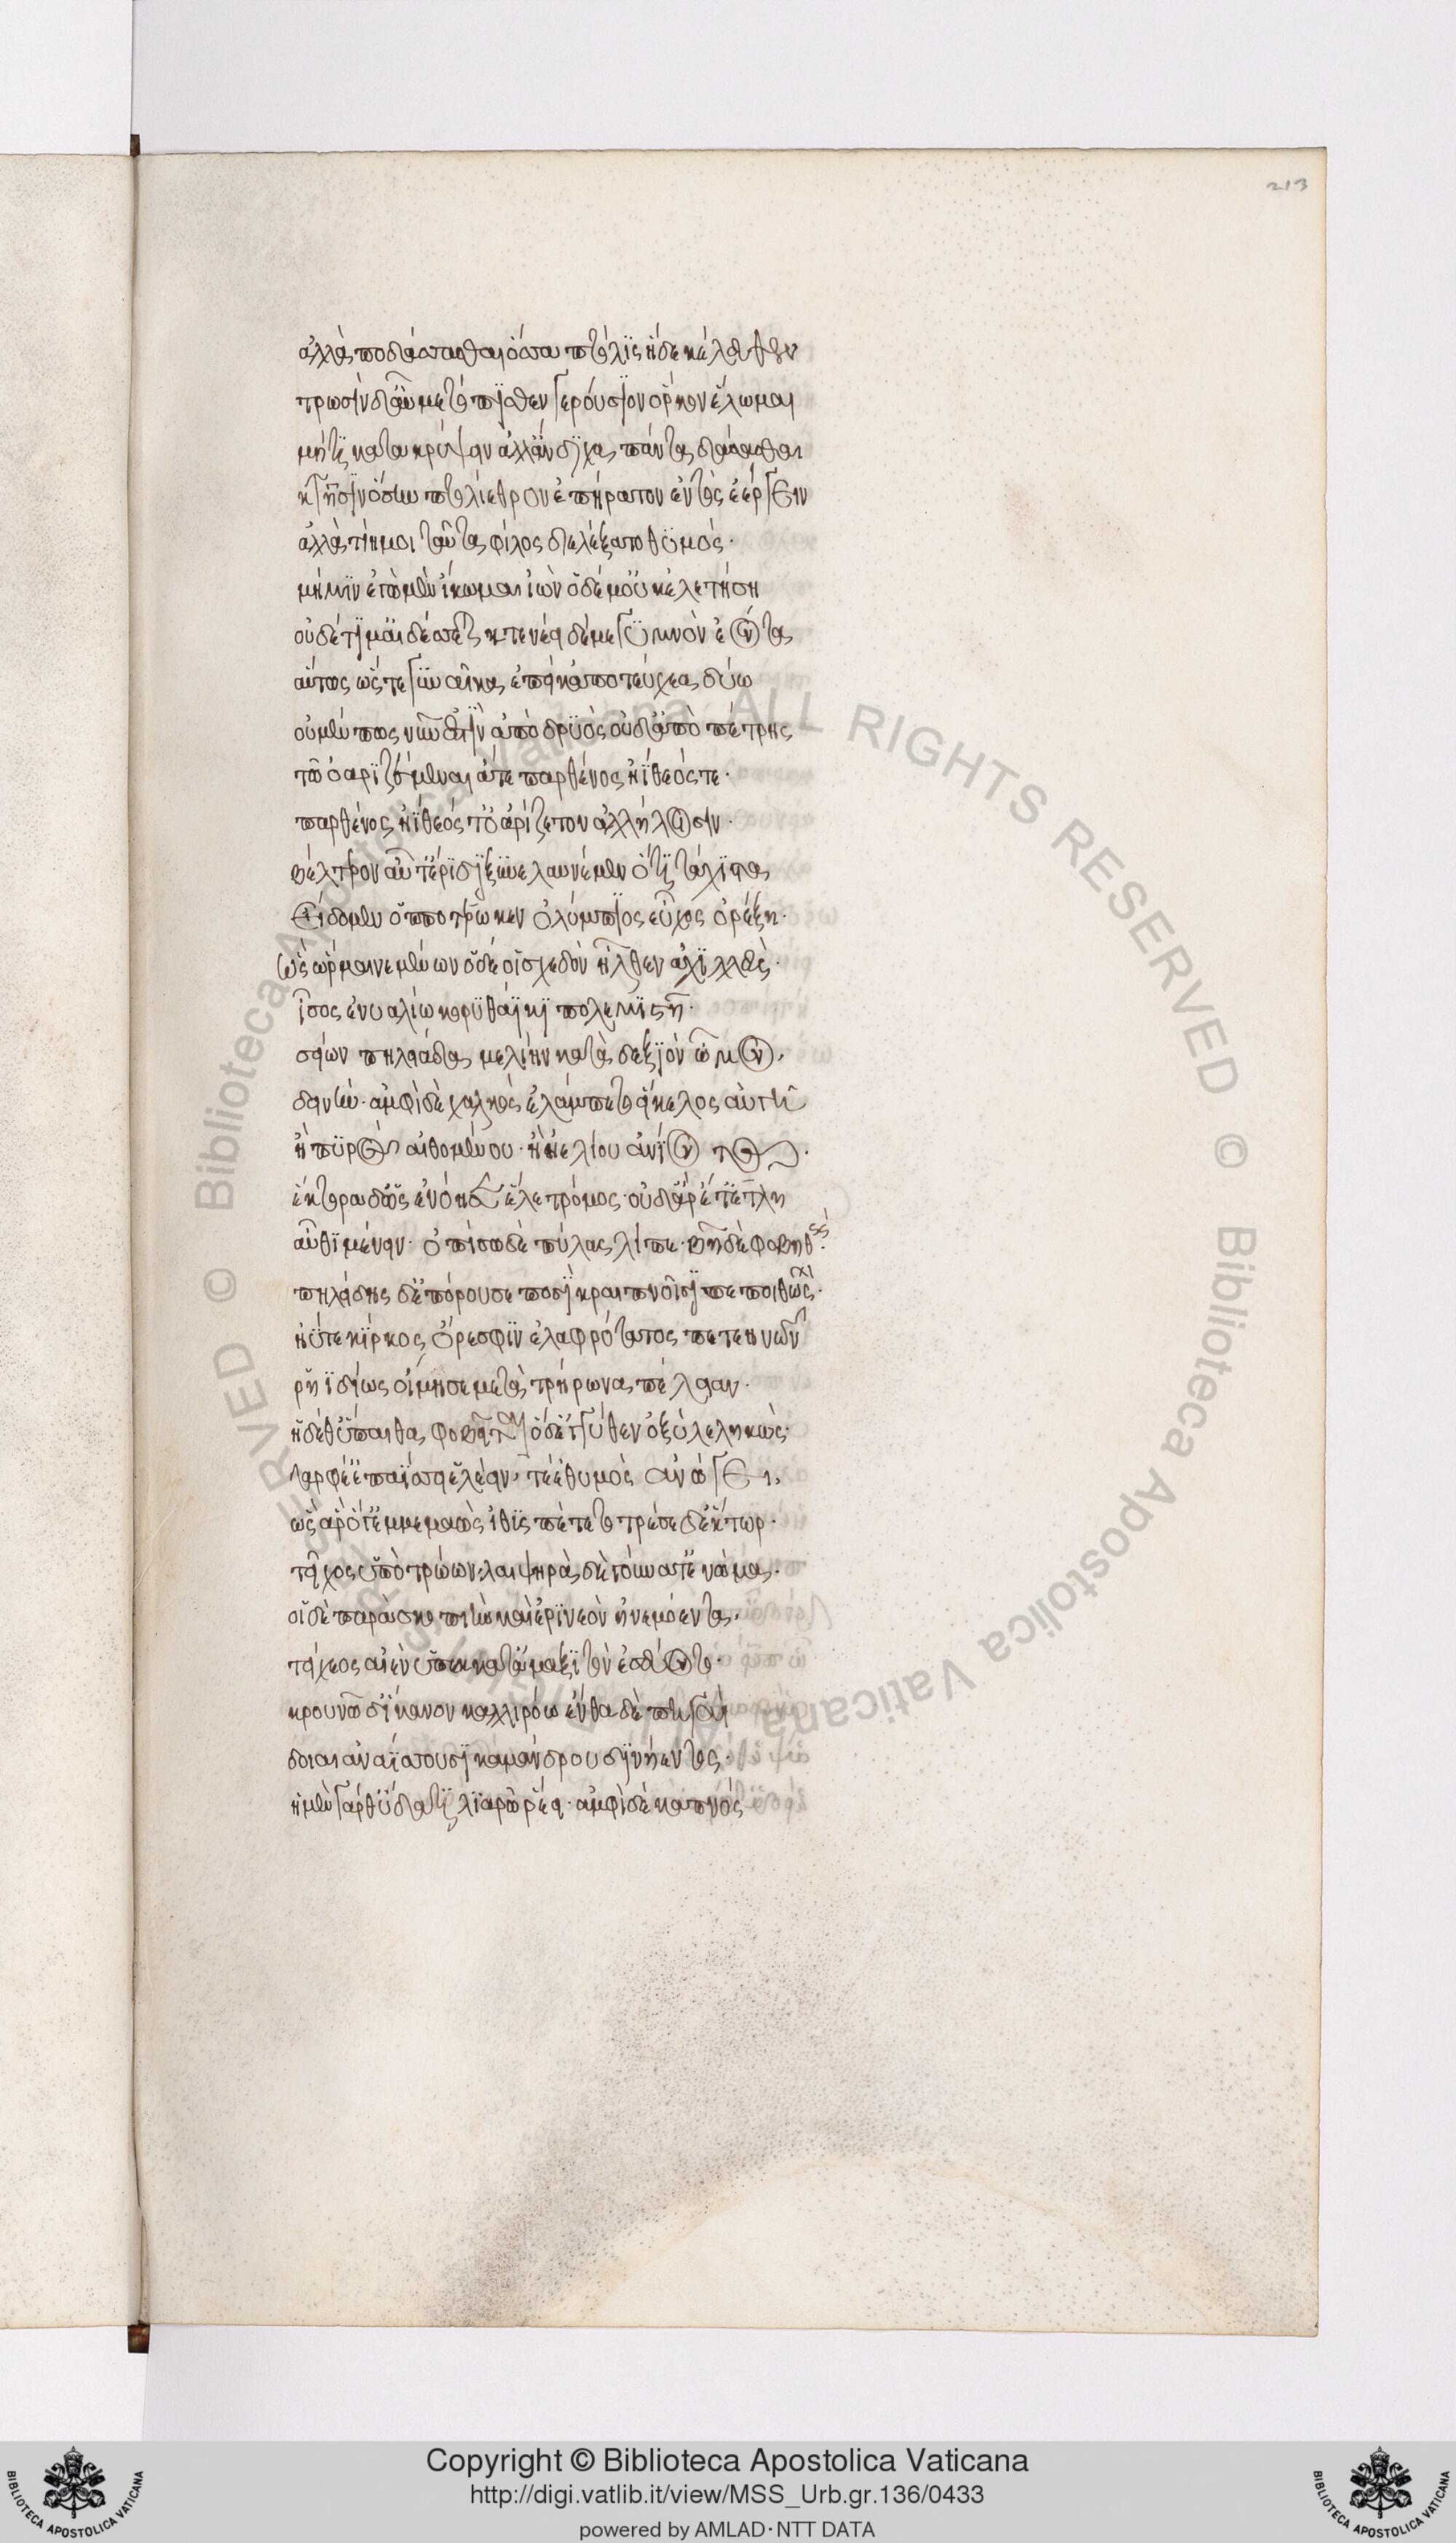 ἀλλ' ἀποδάσσασθαι ὅσσα πτόλις ἥδε κέκευθεν
τρωσὶν δ' αὖ μετόπισθεν γερούσιον ὅρκον ἕλωμαι
μήτι κατακρύψειν ἀλλ' ἄνδιχα πάντα δάσασθαι
κτῆσιν ὅσην πτολίεθρον ἐπήρατον ἐντὸς ἐέργειν
ἀλλὰ τίη μοι ταῦτα φίλος διελέξατο θυμός·
μή μιν ἐγὼ μὲν ἵκωμαι ἰὼν ὁ δέ μ' οὐκ ἐλεήση
οὐδέ τί μ' αἰδέσεται κτενέει δέ με γυμνὸν ἐόντα
αὔτως ὥς τε γυναῖκα ἐπεί κ' ἀπὸ τεύχεα δύω
οὐ μέν πως νῦν ἐστὶν ἀπὸ δρυὸς οὐδ' ἀπὸ πέτρης
τῶ ὀαριζέμεναι ἅτε παρθένος ἠΐθεός τε·
παρθένος ἠΐθεός τ' ὀαρίζετον ἀλλήλοισιν·
βέλτερον αὖτ' ἔριδι ξυνελαυνέμεν ὅττι τάχιστα
εἴδομεν ὁπποτέρω κεν ὀλύμπιος εὖχος ὀρέξη·
ὣς ὥρμαινε μένων ὁ δέ οἱ σχεδὸν ἦλθεν ἀχιλλεὺς·
ἶσος ἐνυαλίω κορυθάϊκι πολεμιστῆ·
σείων πηλιάδα μελίην κατὰ δεξιὸν ὦμον,
δεινήν· ἀμφὶ δὲ χαλκὸς ἐλάμπετο εἴκελος αὐγῆ
ἢ πυρὸς αἰθομένου· ἢ ἠελίου ἀνιόντος·
ἕκτορα δ' ὡς ἐνόησεν ἕλε τρόμος· οὐδ' ἄρ' ἔτ' ἔτλη
αὖθι μένειν· ὀπίσω δὲ πύλας λίπε· βῆ δὲ φοβηθείς·
πηλείδης δ' ἐπόρουσε ποσὶ κραιπνοῖσι πεποιθώς·
ἠΰτε κίρκος ὄρεσφιν ἐλαφρότατος πετεηνῶν
ῥηϊδίως οἴμησε μετὰ τρήρωνα πέλειαν·
ἡ δέ θ' ὕπαιθα φοβεῖται ὁ δ' ἐγγύθεν ὀξὺ λεληκώς·
ταρφέ' ἐπαΐσσει ἑλέειν, τέ ἑ θυμὸς ἀνώγει,
ὣς ἄρ' ὅγ' ἐμμεμαὼς ἰθὺς πέτετο τρέσε δ' ἕκτωρ·
τεῖχος ὕπο τρώων· λαιψηρὰ δὲ γούνατ' ἐνώμα·
οἱ δὲ παρὰ σκοπιὴν καὶ ἐρινεὸν ἠνεμόεντα,
τείχεος αἰὲν ὑπεκ κατ' ἀμαξιτὸν ἐσσεύοντο·
κρουνὼ δ' ἵκανον καλλιρόω ἔνθα δὲ πηγαὶ
δοιαὶ ἀναΐσσουσι καμάνδρου δινήεντος·
ἡ μὲν γάρ θ' ὕδατι λιαρῶ ῥέει· ἀμφὶ δὲ καπνός
213
Copyright © Biblioteca Apostolica Vaticana
http://digi.vatlib.it/view/MSS_Urb.gr.136/0433
powered by AMLAD·NTT DATA